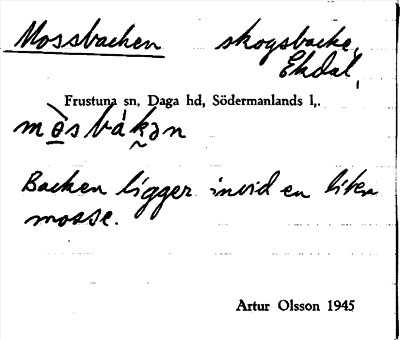 Mossbacken skogsbacke,
Ekdal,
Frustuna sn, Daga hd, Södermanlands l,.
mòsbákən
Backen ligger invid en liten
mosse.
Artur Olsson 1945